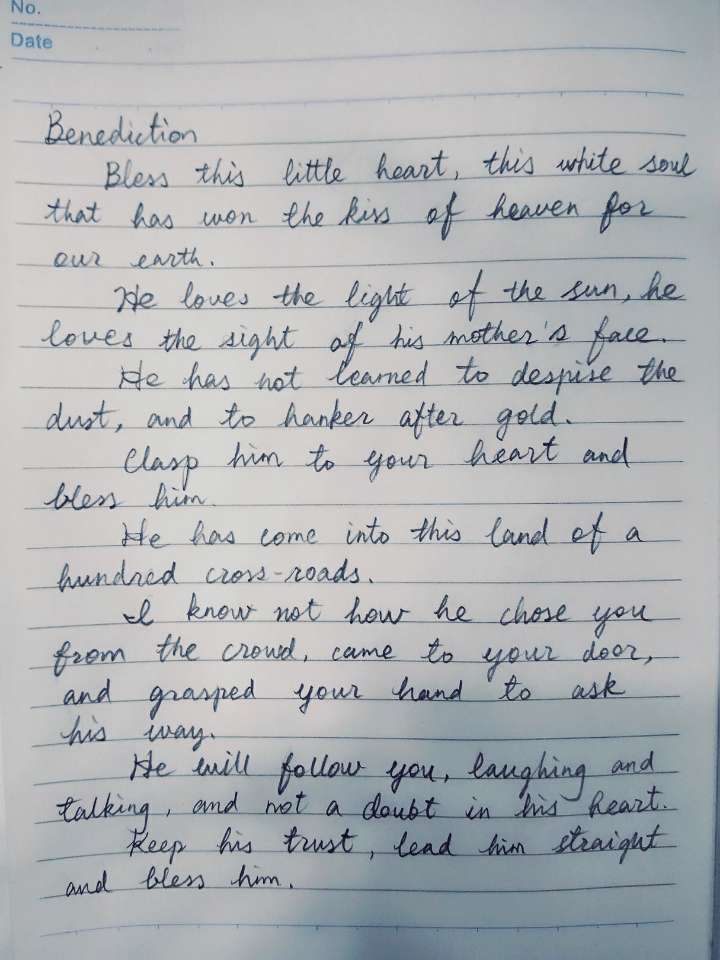 No.
Date
Benediction
Bless this little heart, this white soul
that has won the kiss of heaven for
our earth.
He loves the light of the sun, he
loves the sight of his mother's face.
He has not learned to despise the
dust, and to hanker after gold.
Clasp him to your heart and
bless him.
He has come into this land of a
hundred cross-roads.
I know not how he chose you
from the crowd, came to your door,
and grasped your hand to ask
his way.
He will follow you, laughing and
talking, and not a doubt in his heart.
Keep his trust, lead him straight
and bless him.